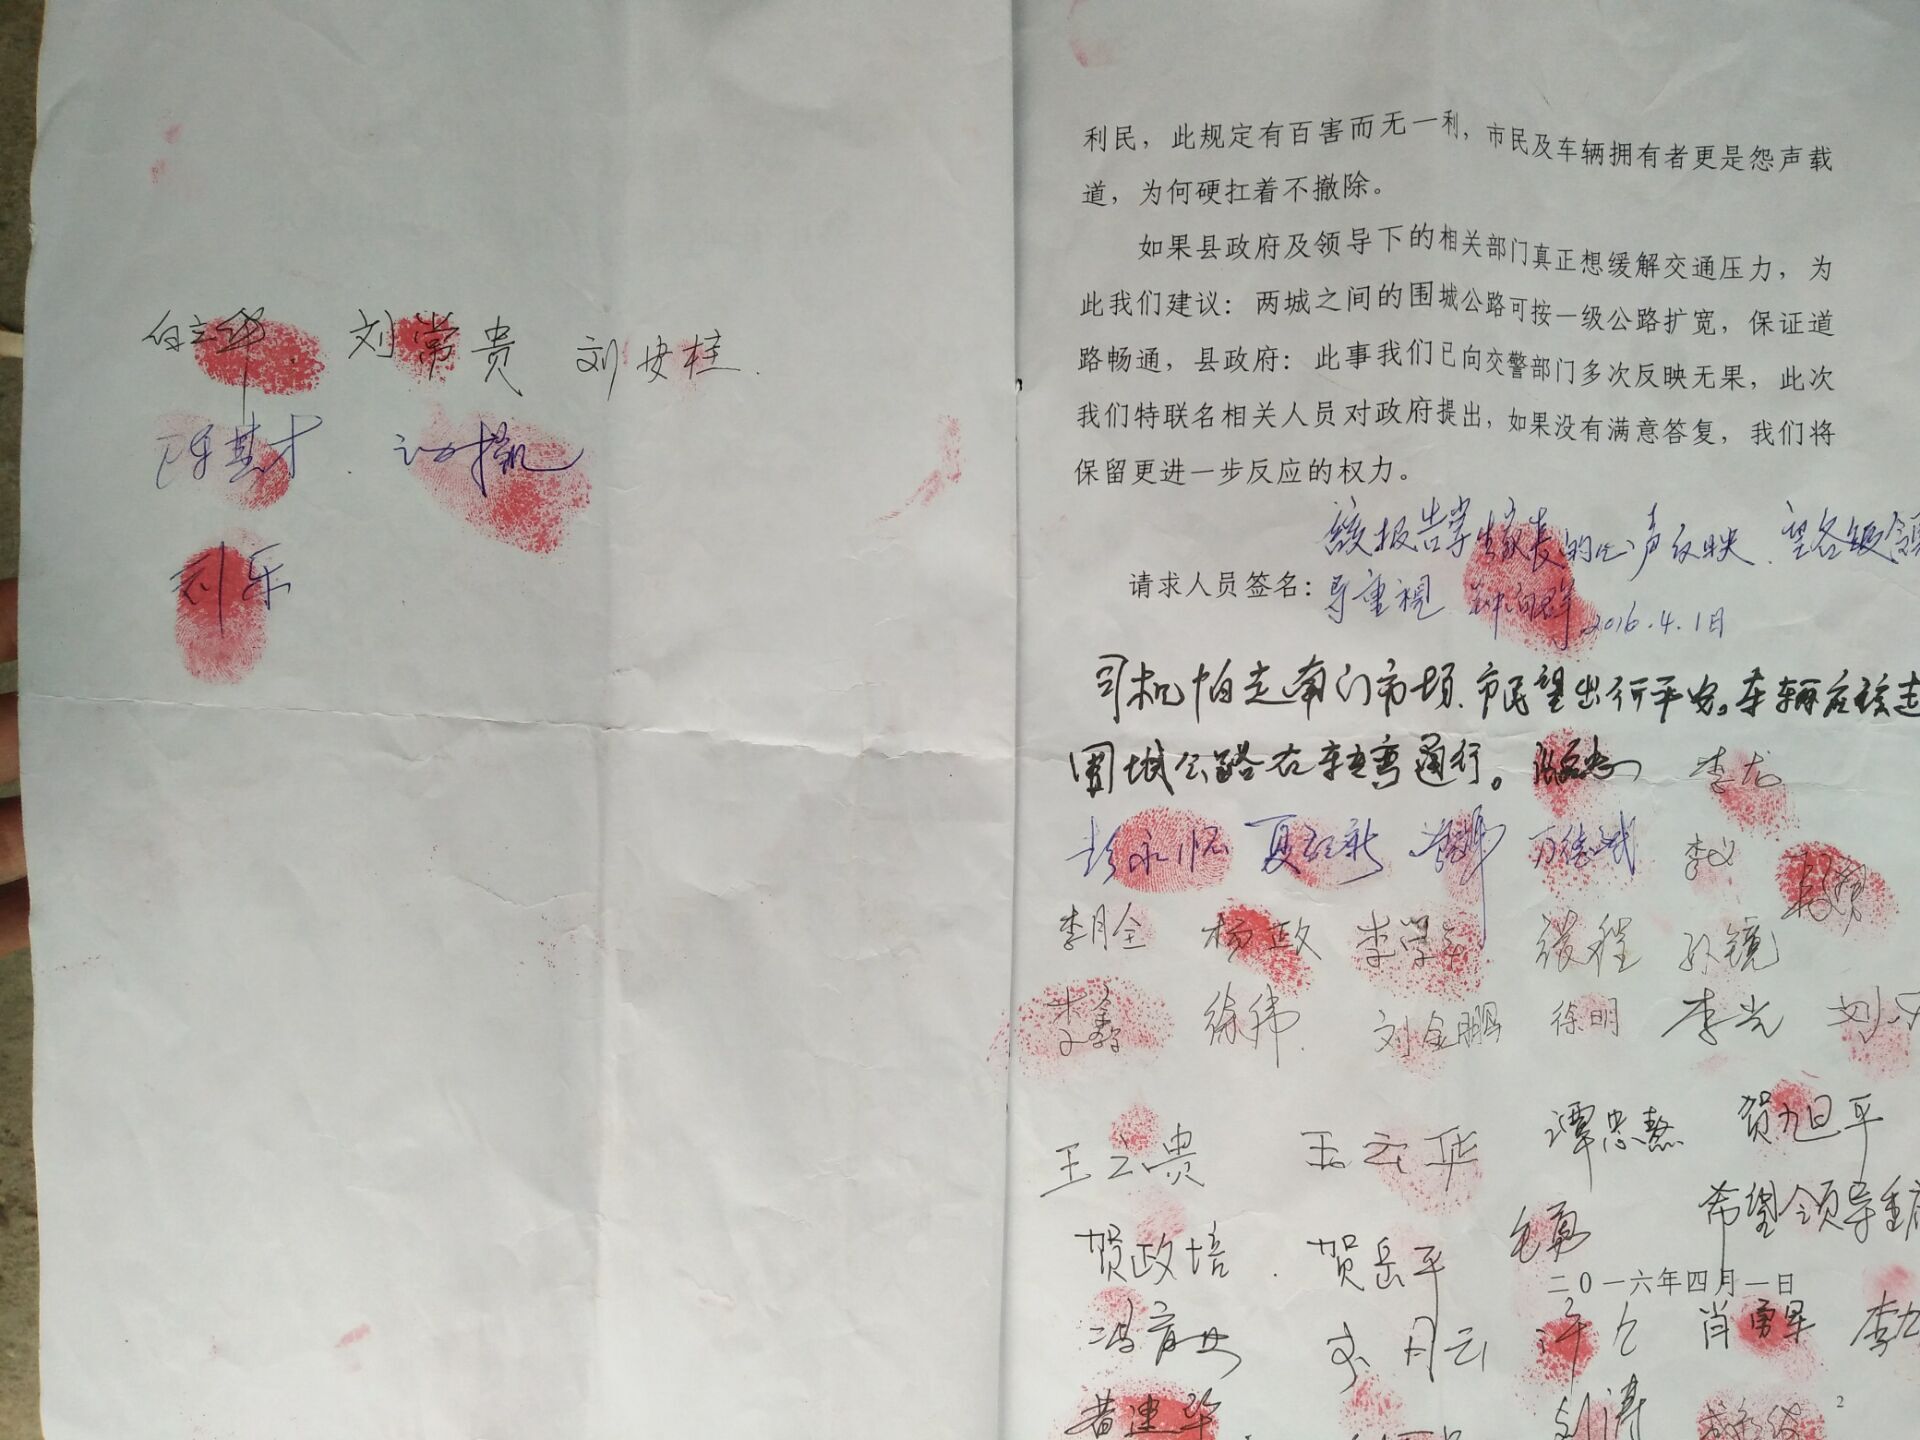 白立华 刘常贵 刘安桂
陈基才
刘乐
利民，此规定有百害而无一利，市民及车辆拥有者更是怨声载
道，为何硬扛着不撤除。
如果县政府及领导下的相关部门真正想缓解交通压力，为
此我们建议：两城之间的围城公路可按一级公路扩宽，保证道
路畅通，县政府：此事我们已向交警部门多次反映无果，此次
我们特联名相关人员对政府提出，如果没有满意答复，我们将
保留更进一步反应的权力。
该报告学生家长的心声反映．望各级领
请求人员签名：导重视 2016.4.1日
司机怕走南门市场．市民望出行平安。车辆应该走
围城公路右转弯通行。 李龙
彭永 夏 万德斌 李义
李月全 杨政 李学 张程 孙镜
李鑫 徐伟 刘金鹏 徐明 李光 刘
王立贵 王云华 谭忠鳌 贺旭平
希望领导重
贺政培 贺岳平 毛勇
二〇一六年四月一日
冯育 月云 许 肖勇军 李
黄建华 刘涛
2